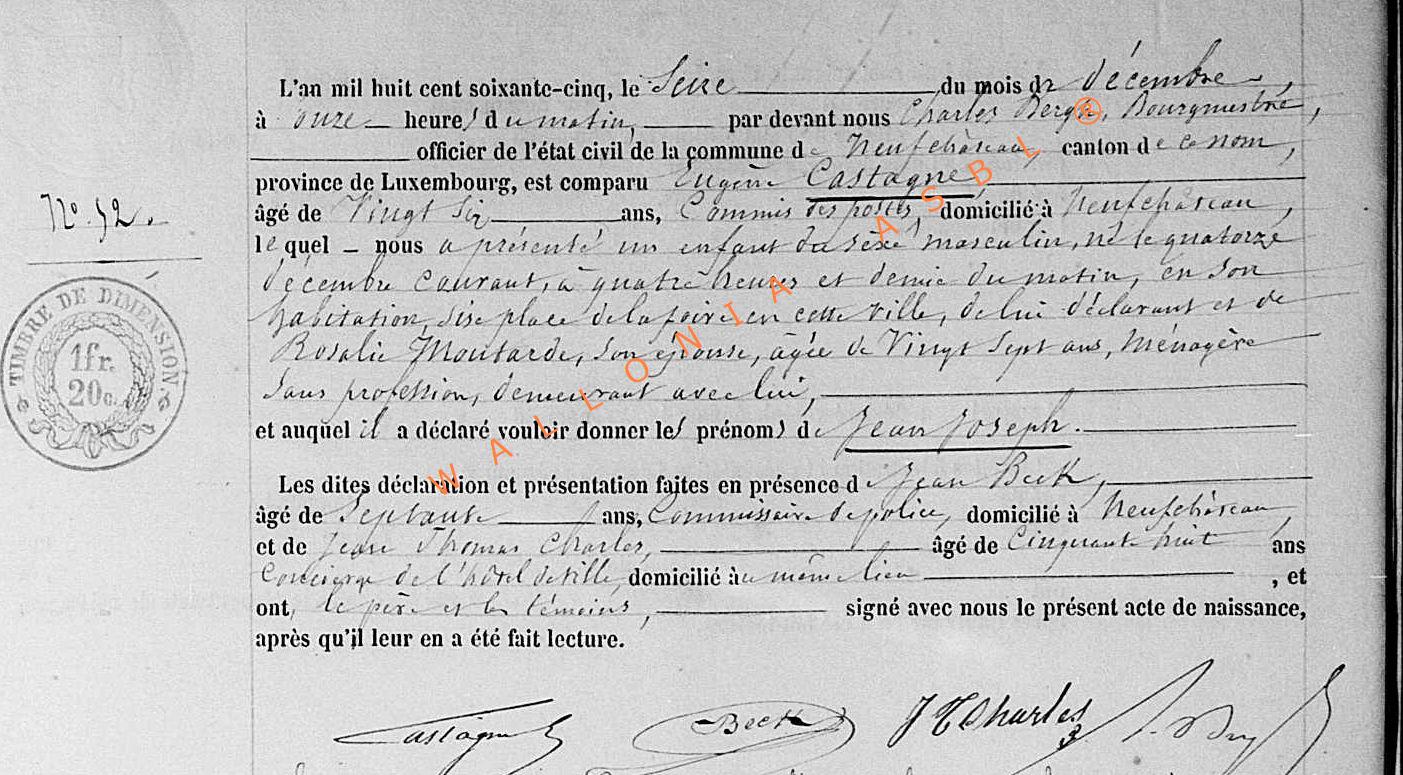 L'an mil huit cent soixante-cinq, le Seize du mois de décembre,
à onze heures du matin, par devant nous Charles Bergh, Bourgmestre,
officier de l'état civil de la commune de Neufchâteau, canton de ce nom,
province de Luxembourg, est comparu Eugène Castagne
N° 92.
âgé de Vingt Six ans, Commis des postes, domicilié à Neufchâteau,
lequel nous a présenté un enfant du sexe masculin, né le quatorze
décembre courant, à quatre heures et demie du matin, en son
habitation, sise place de la foire en cette ville, de lui déclarant et de
Rosalie Moutarde, son épouse, âgée de Vingt Sept ans, Ménagère
sans profession, demeurant avec lui,
et auquel il a déclaré vouloir donner les prénoms de Jean Joseph.
TIMBRE DE DIMENSION
1fr.
20c.
Les dites déclaration et présentation faites en présence de Jean Beck,
âgé de Septante ans, Commissaire de police, domicilié à Neufchâteau,
et de Jean Thomas Charles, âgé de Cinquante huit ans
Concierge de l'hôtel de ville, domicilié au même lieu, et
ont, le père et les témoins, signé avec nous le présent acte de naissance,
après qu'il leur en a été fait lecture.
Castagne Beck J T Charles
WALLONIA ASBL ®